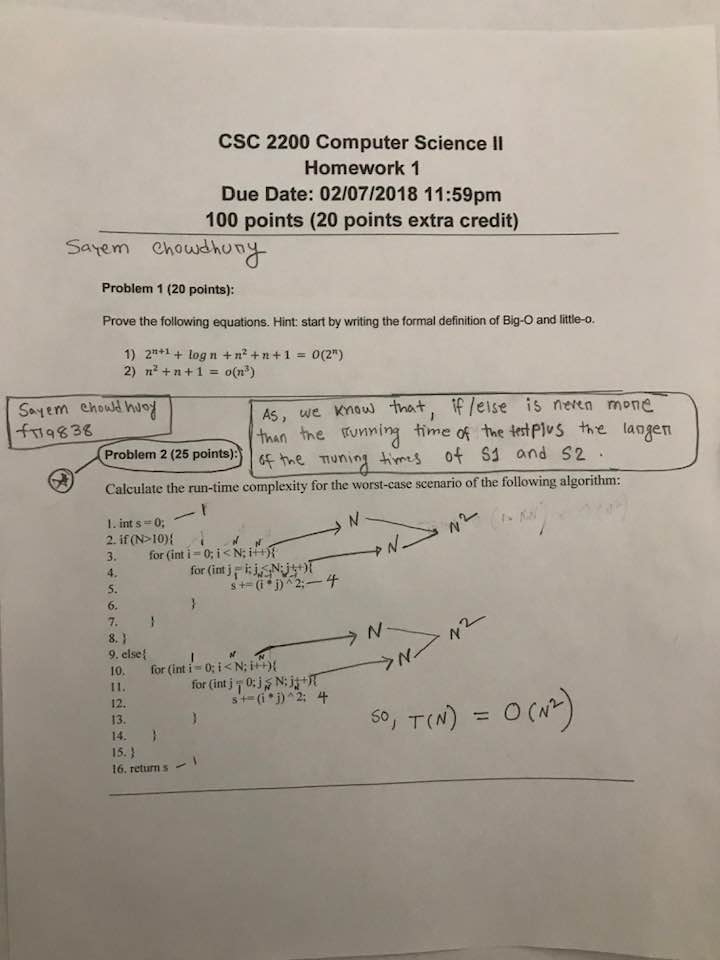 CSC 2200 Computer Science II
Homework 1
Due Date: 02/07/2018 11:59pm
100 points (20 points extra credit)
Sayem Chowdhury
Problem 1 (20 points):
Prove the following equations. Hint: start by writing the formal definition of Big-O and little-o.
1) 2ⁿ⁺¹ + log n + n² + n + 1 = O(2ⁿ)
2) n² + n + 1 = o(n³)
Sayem Chowdhury
fT19838
As, we know that, if/else is never more
than the running time of the test plus the larger
of the runing times of S1 and S2.
Problem 2 (25 points):
Calculate the run-time complexity for the worst-case scenario of the following algorithm:
1. int s = 0; — 1
2. if (N>10){
3. for (int i = 0; i < N; i++){ 1 N N → N
4. for (int j = i; j < N; j++){ → N N²
5. s += (i * j) ^ 2; — 4
6. }
7. }
8. }
9. else{
10. for (int i = 0; i < N; i++){ 1 N N → N
11. for (int j = 0; j < N; j++){ → N N²
12. s += (i * j) ^ 2; 4
13. }
14. }
15. }
16. return s — 1
so, T(N) = O(N²)